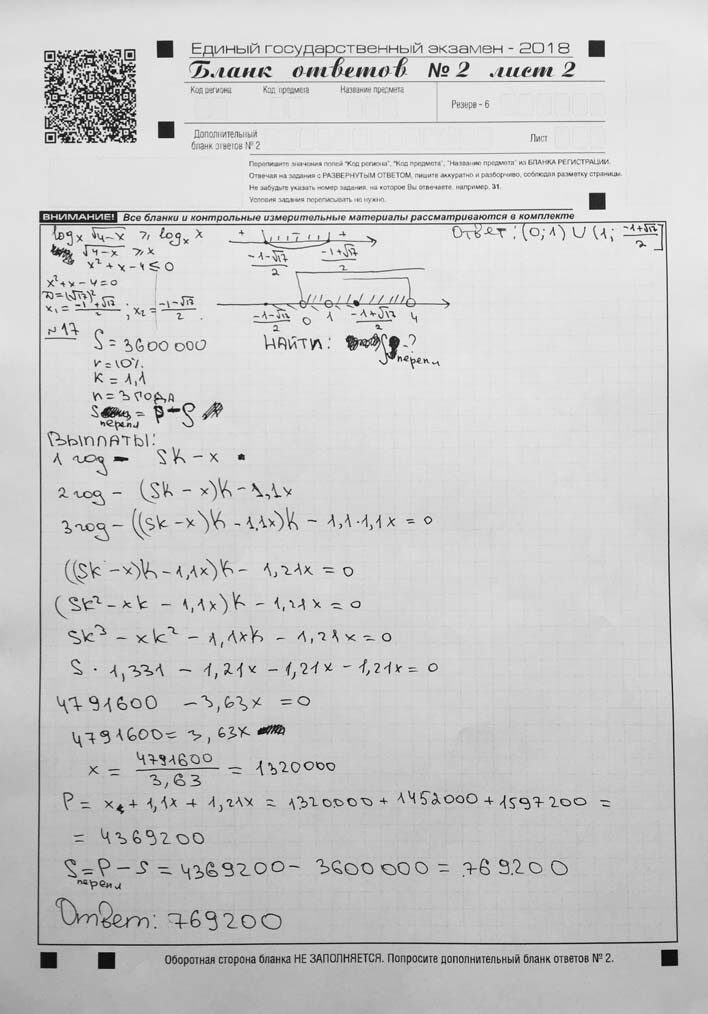 Единый государственный экзамен - 2018
Бланк ответов № 2 лист 2
Код региона Код предмета Название предмета
Резерв - 6
Дополнительный бланк ответов № 2
Лист
Перепишите значения полей "Код региона", "Код предмета", "Название предмета" из БЛАНКА РЕГИСТРАЦИИ.
Отвечая на задания с РАЗВЕРНУТЫМ ОТВЕТОМ, пишите аккуратно и разборчиво, соблюдая разметку страницы.
Не забудьте указать номер задания, на которое Вы отвечаете, например, 31.
Условия задания переписывать не нужно.
ВНИМАНИЕ! Все бланки и контрольные измерительные материалы рассматриваются в комплекте
log_x √(4-x) ≥ log_x x
√(4-x) ≥ x
x² + x - 4 ≤ 0
x² + x - 4 = 0
D = (√17)²
x₁ = (-1+√17)/2 ; x₂ = (-1-√17)/2
+ - +
(-1-√17)/2 (-1+√17)/2
(-1-√17)/2 0 1 (-1+√17)/2 4
Ответ: (0; 1) ∪ (1; (-1+√17)/2]
№ 17
S = 3600 000
r = 10%
k = 1,1
n = 3 года
S перепл = P - S
НАЙТИ: S перепл - ?
ВЫПЛАТЫ:
1 год - Sk - x
2 год - (Sk - x)k - 1,1x
3 год - ((Sk - x)k - 1,1x)k - 1,1·1,1x = 0
((Sk - x)k - 1,1x)k - 1,21x = 0
(Sk² - xk - 1,1x)k - 1,21x = 0
Sk³ - xk² - 1,1xk - 1,21x = 0
S · 1,331 - 1,21x - 1,21x - 1,21x = 0
4791600 - 3,63x = 0
4791600 = 3,63x
x = 4791600/3,63 = 1320000
P = x + 1,1x + 1,21x = 1320000 + 1452000 + 1597200 =
= 4369200
S перепл = P - S = 4369200 - 3600000 = 769200
Ответ: 769200
Оборотная сторона бланка НЕ ЗАПОЛНЯЕТСЯ. Попросите дополнительный бланк ответов № 2.